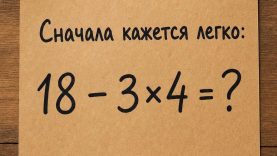 Сначала кажется легко:
18 − 3×4 = ?